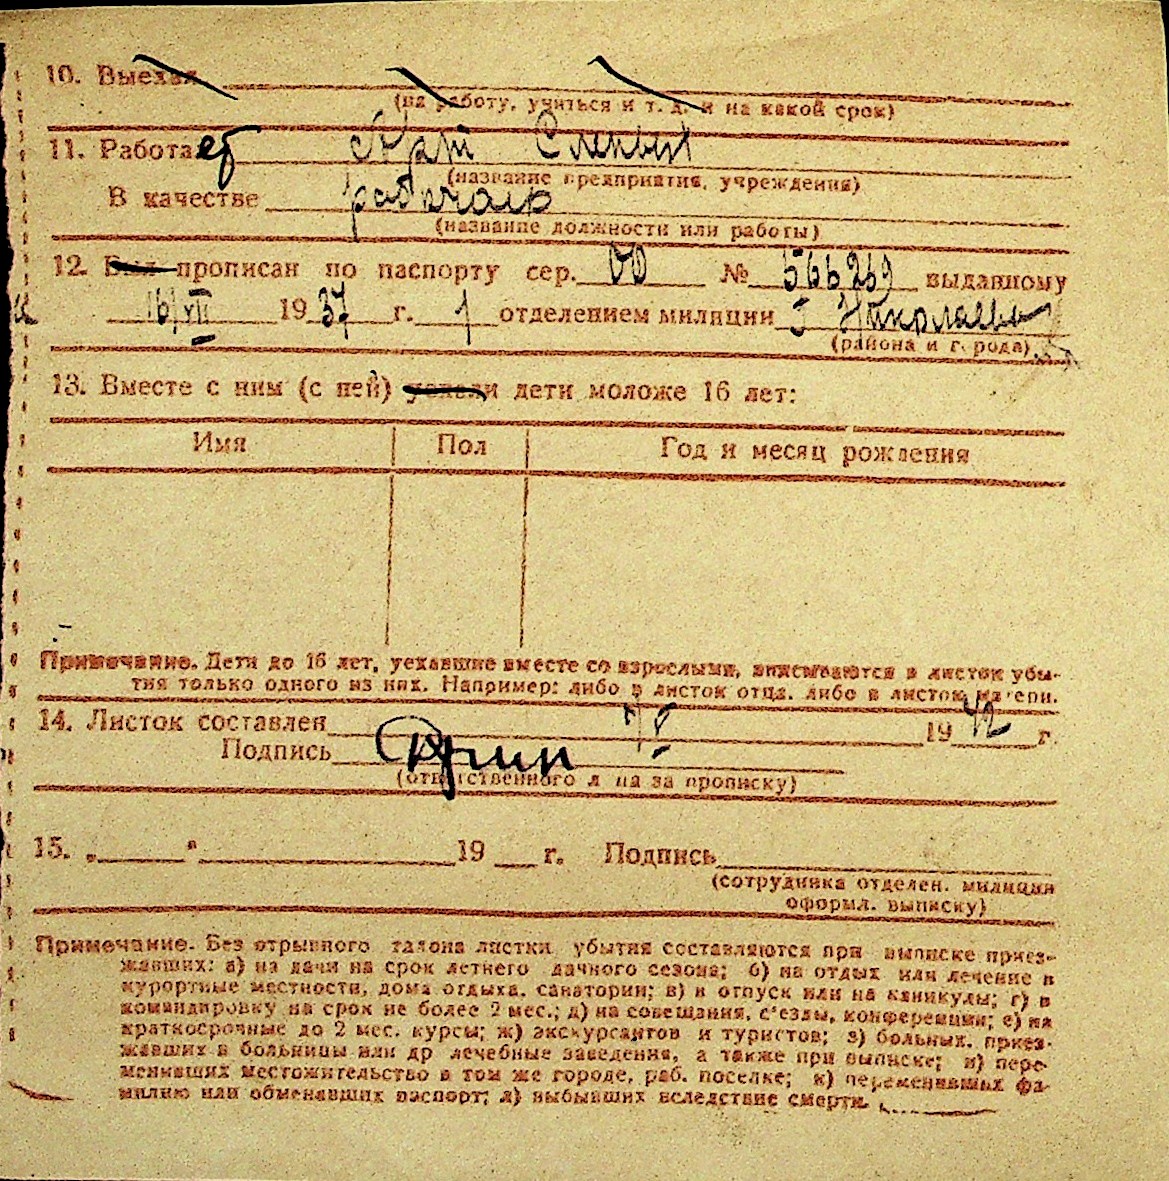 10. Выехал
(на работу, учиться и т. д. и на какой срок)
11. Работает Арт Слепых
(название предприятия, учреждения)
В качестве рабочего
(название должности или работы)
12. Был прописан по паспорту сер. № 566269 выданному
16/VII 1937 г. 1 отделением милиции г Николаева
(района и города)
13. Вместе с ним (с ней) уехали дети моложе 16 лет:
Имя Пол Год и месяц рождения
Примечание. Дети до 16 лет, уехавшие вместе со взрослыми, вписываются в листок убы-
тия только одного из них. Например: либо в листок отца, либо в листок матери.
14. Листок составлен 1942 г.
Подпись
(ответственного лица за прописку)
15. „ " 19 г. Подпись
(сотрудника отделен. милиции
оформл. выписку)
Примечание. Без отрывного талона листки убытия составляются при выписке приез-
жавших: а) на дачи на срок летнего дачного сезона; б) на отдых или лечение в
курортные местности, дома отдыха, санатории; в) в отпуск или на каникулы; г) в
командировку на срок не более 2 мес.; д) на совещания, с'езды, конференции; е) на
краткосрочные до 2 мес. курсы; ж) экскурсантов и туристов; з) больных, приез-
жавших в больницы или др лечебные заведения, а также при выписке; и) пере-
менивших местожительство в том же городе, раб. поселке; к) переменивших фа-
милию или обменявших паспорт; л) выбывших вследствие смерти.